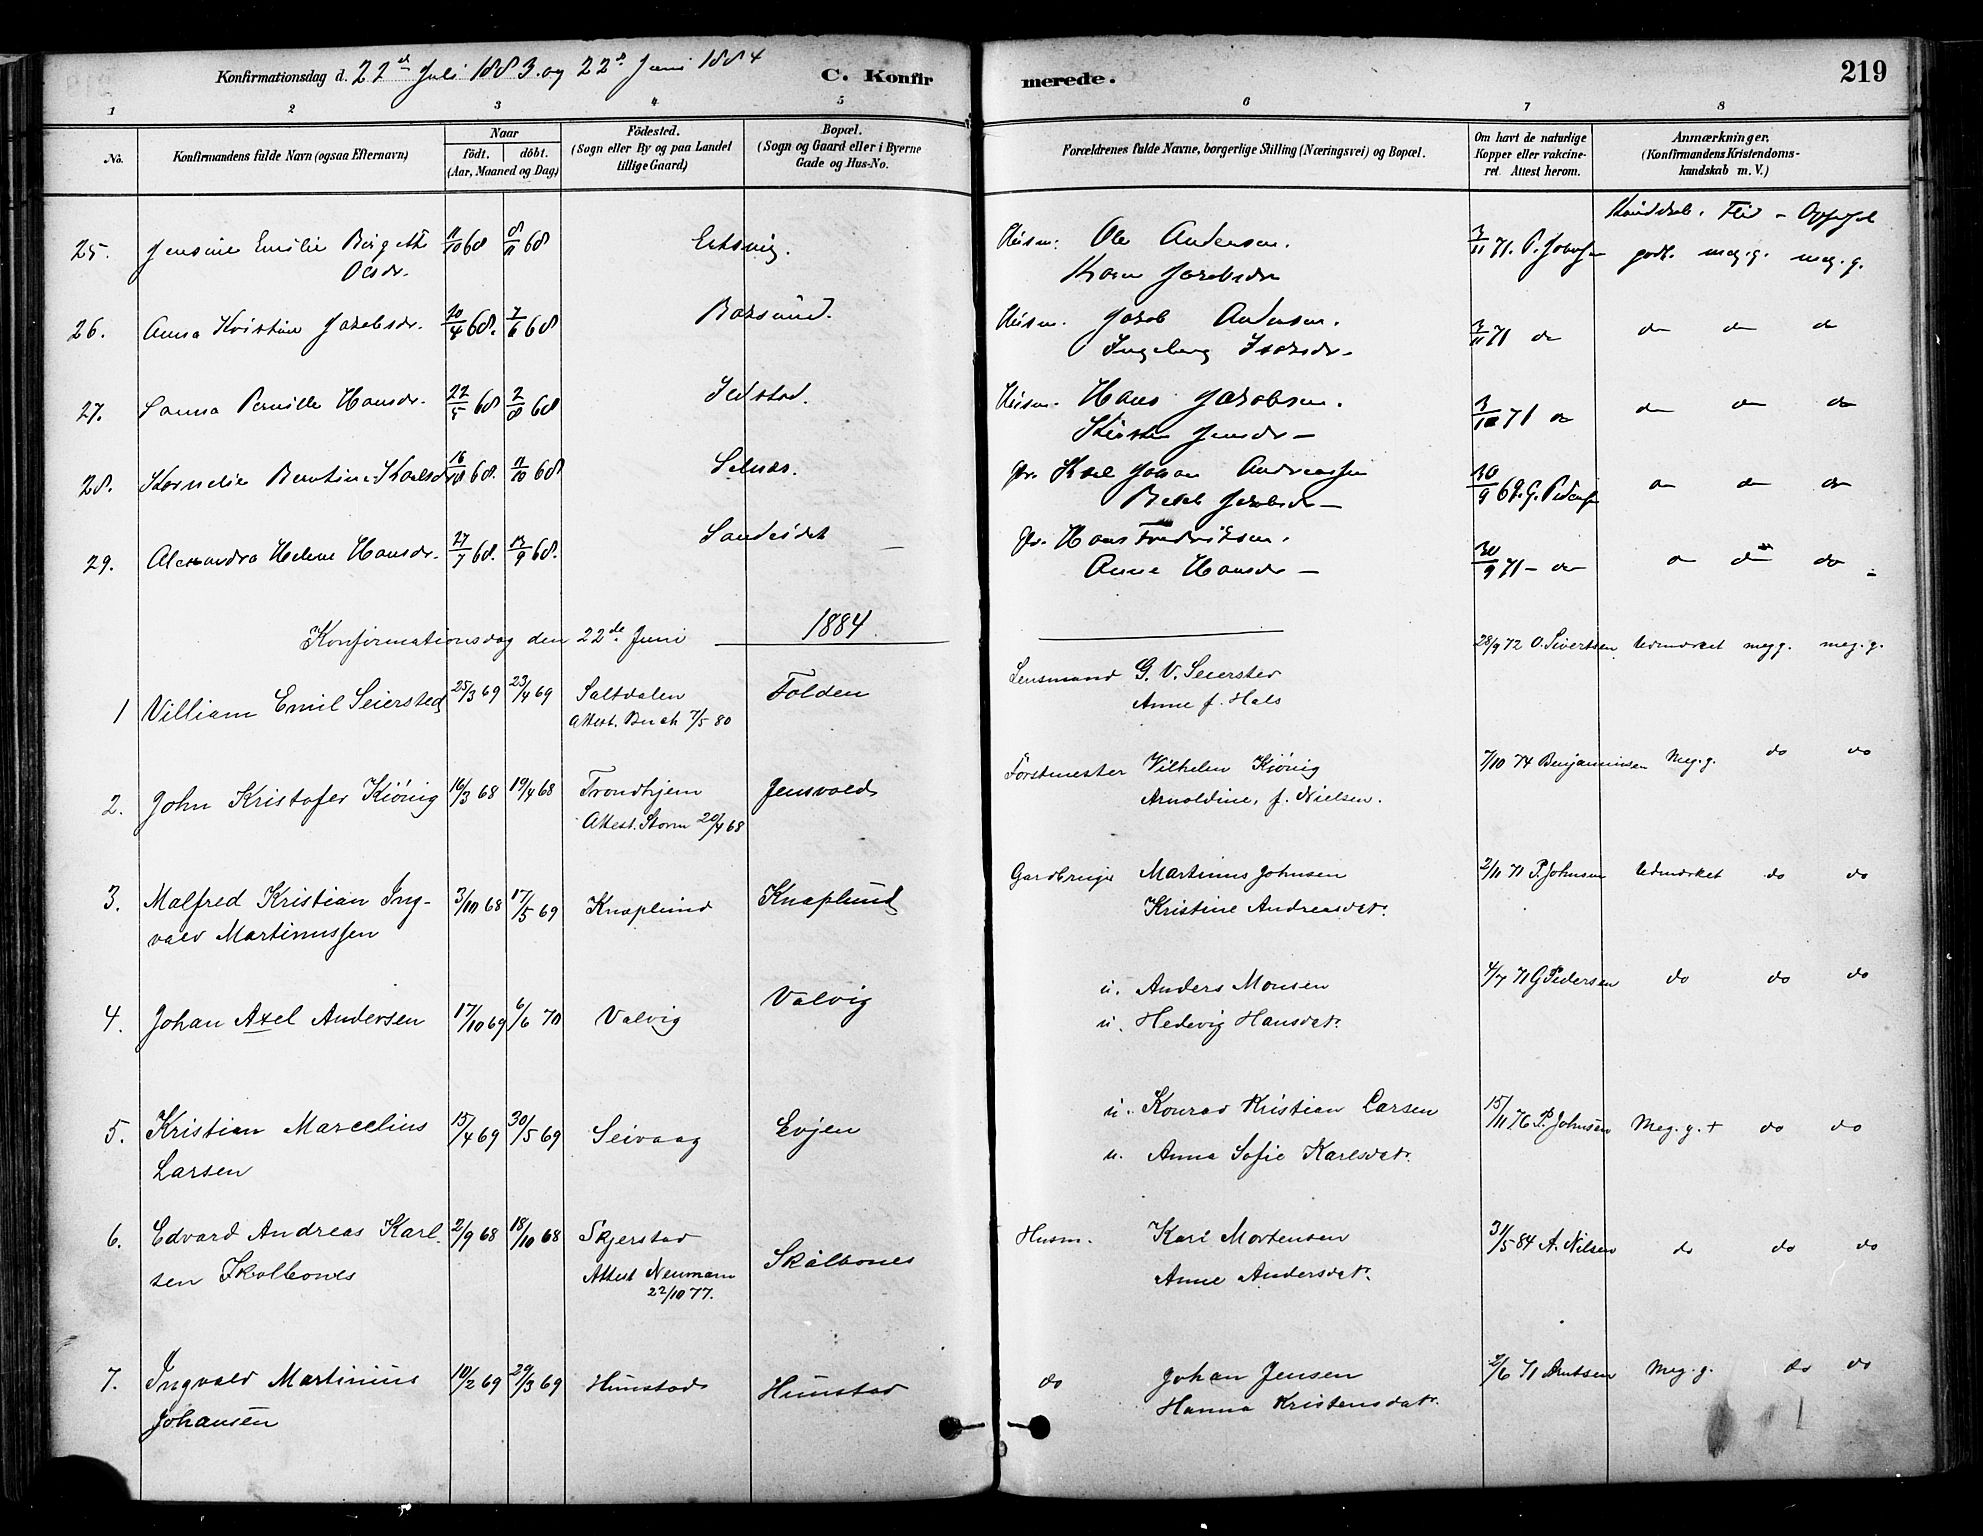 Konfirmationsdag d. 22de Juli 1883. og 22de Juni 1884 C. Konfirmerede. 219
1 2 3 4 5 6 7 8
No. Konfirmandens fulde Navn (ogsaa Efternavn) Naar födt. döbt. (Aar, Maaned og Dag) Födested. (Sogn eller By og paa Landet tillige Gaard) Bopæl. (Sogn og Gaard eller i Byerne Gade og Hus-No. Forældrenes fulde Navne, borgerlige Stilling (Næringsvei) og Bopæl. Om havt de naturlige Kopper eller vakcineret Attest herom. Anmærkninger. (Konfirmandens Kristendomskundskab m. V.)
Kundskab. Flid - Opførsel
25. Jensine Emilie Birgitte 11/10 68 8/11 68 Husm. Ole Andersen. 3/11 71. P. Johnsen godt. meg. g. meg. g.
Olsdr. Karen Jakobsdr
26. Anna Kristine Jakobsdr. 20/4 68. 7/6 68 Husm. Jakob Andersen. 3/11 71 do do do do
Ingeborg Isaksdr -
27. Sanna Pernille Hansdr. 22/5 68 2/8 68 Ildstad. Husm. Hans Jakobsen. 3/10 71 do do do do
Kirsten Jensdr -
28. Kornelie Bentine Karlsdr 16/8 68. 11/10 68 Selnæs. Karl Johan Andreassen 30/9 69. G. Pedersen do do do
Jakobsdr -
29. Alexandra Helene Hansdr. 27/7 68. 13/9 68. Hans Fredriksen. 30/9 71 - do do do do
Anne Hansdr -
Konfirmationsdag den 22de Juni 1884
1 Villiam Emil Seiersted 25/3 69 23/4 69 Saltdalen Folden Lensmand G. V. Seiersted 28/9 72 O. Sivertsen Udmærket meg g. meg. g.
Attest. Buch 7/5 80 Anne f. Hals
2. John Kristofer Kiönig 16/3 68 19/4 68 Trondhjem Jensvold Forstmester Vilhelm Kiönig 7/10 74 Benjaminsen Meg. g. do do
Attest. Storm 20/4 68 Arnoldine, f. Nielsen.
3. Malfred Kristian Ing- 3/10 68 17/5 69 Knaplund Knaplund Gardbruger Martinus Johnsen 2/11 71 P. Johnsen Udmærket do do
vald Martinussen Kristine Andreasdatr.
4. Johan Axel Andersen 17/10 69 6/6 70 Valvig Valvig u. Anders Monsen 4/7 71 G Pedersen do do do
u. Hedevig Hansdatr.
5. Kristian Marcelius 15/4 69 30/5 69 Seivaag Evjen u. Konrad Kristian Larsen 15/11 76 P. Johnsen Meg. g. + do do
Larsen u. Anna Sofie Karlsdatr.
6. Edvard Andreas Karl- 2/9 68 18/10 68 Skjerstad Skålbones Husm. Karl Mortensen 31/5 84 A. Nilsen do do do
sen Skolbones Attest Neumann Anne Andersdatr.
22/10 77.
7. Ingvald Martinius 10/2 69 29/3 69 Hunstad Hunstad do Johan Jensen 2/6 71 Arntsen Meg. g. do do
Johansen Hanna Kristensdatr.